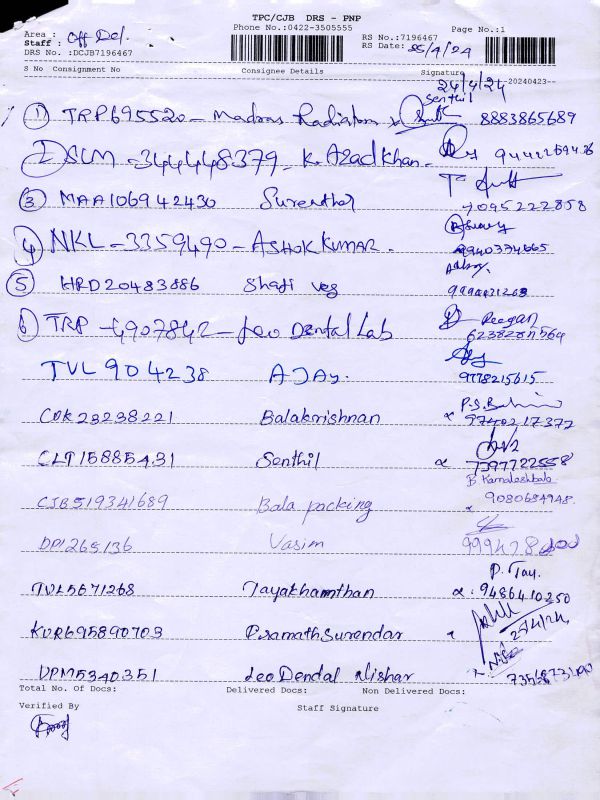 TPC/CJB DRS - PNP
Phone No.:0422-3505555
Page No.:1
Area : Off Del.
RS No.:7196467
Staff :
RS Date: 25/4/24
DRS No. :DCJB7196467
S No Consignment No Consignee Details Signature -20240423--
24/4/24
Senthil
1) TRP695520 - Madras Radiators 8883865689
2 SLM - 344448379 - K. Azad Khan.
3 MAA106942430 Surenthar
7095222858
4 NKL - 3359490 - ASHOK KUMAR.
9940334665
5 HRD20483886 Shaji veg
6 TRP - 4907842 - Leo Dental Lab
Reegan
TVL904238 AJAY.
9778215615
COK23238221 Balakrishnan
CLT158855431 Senthil
7397722558
B Kamaleshbabu
CJB519341689 Bala packing
9080684948.
DPI265136 Vasim
P. Jay.
TVL5671268 Jayakhamthan
9486410250
KUR695890703 Pramath Surendar
25/4/24
VPM5340351 Leo Dendal Nishar
Total No. Of Docs: Delivered Docs: Non Delivered Docs:
Verified By Staff Signature